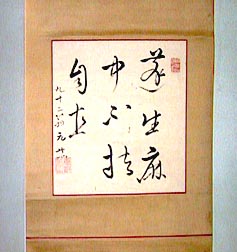 蓬生麻
中不扶
自直
九十二翁元